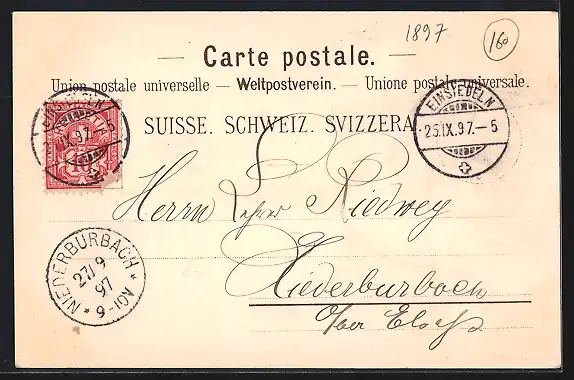 1897
160
— Carte postale. —
Union postale universelle — Weltpostverein. — Unione postale universale.
SUISSE. SCHWEIZ. SVIZZERA.
EINSIEDELN
IX.97.
10
EINSIEDELN
25.IX.97.–5
Herrn Lehrer Riedweg
Niederburbach
Ober Elsaß
NIEDERBURBACH
27/9
97
9-10V